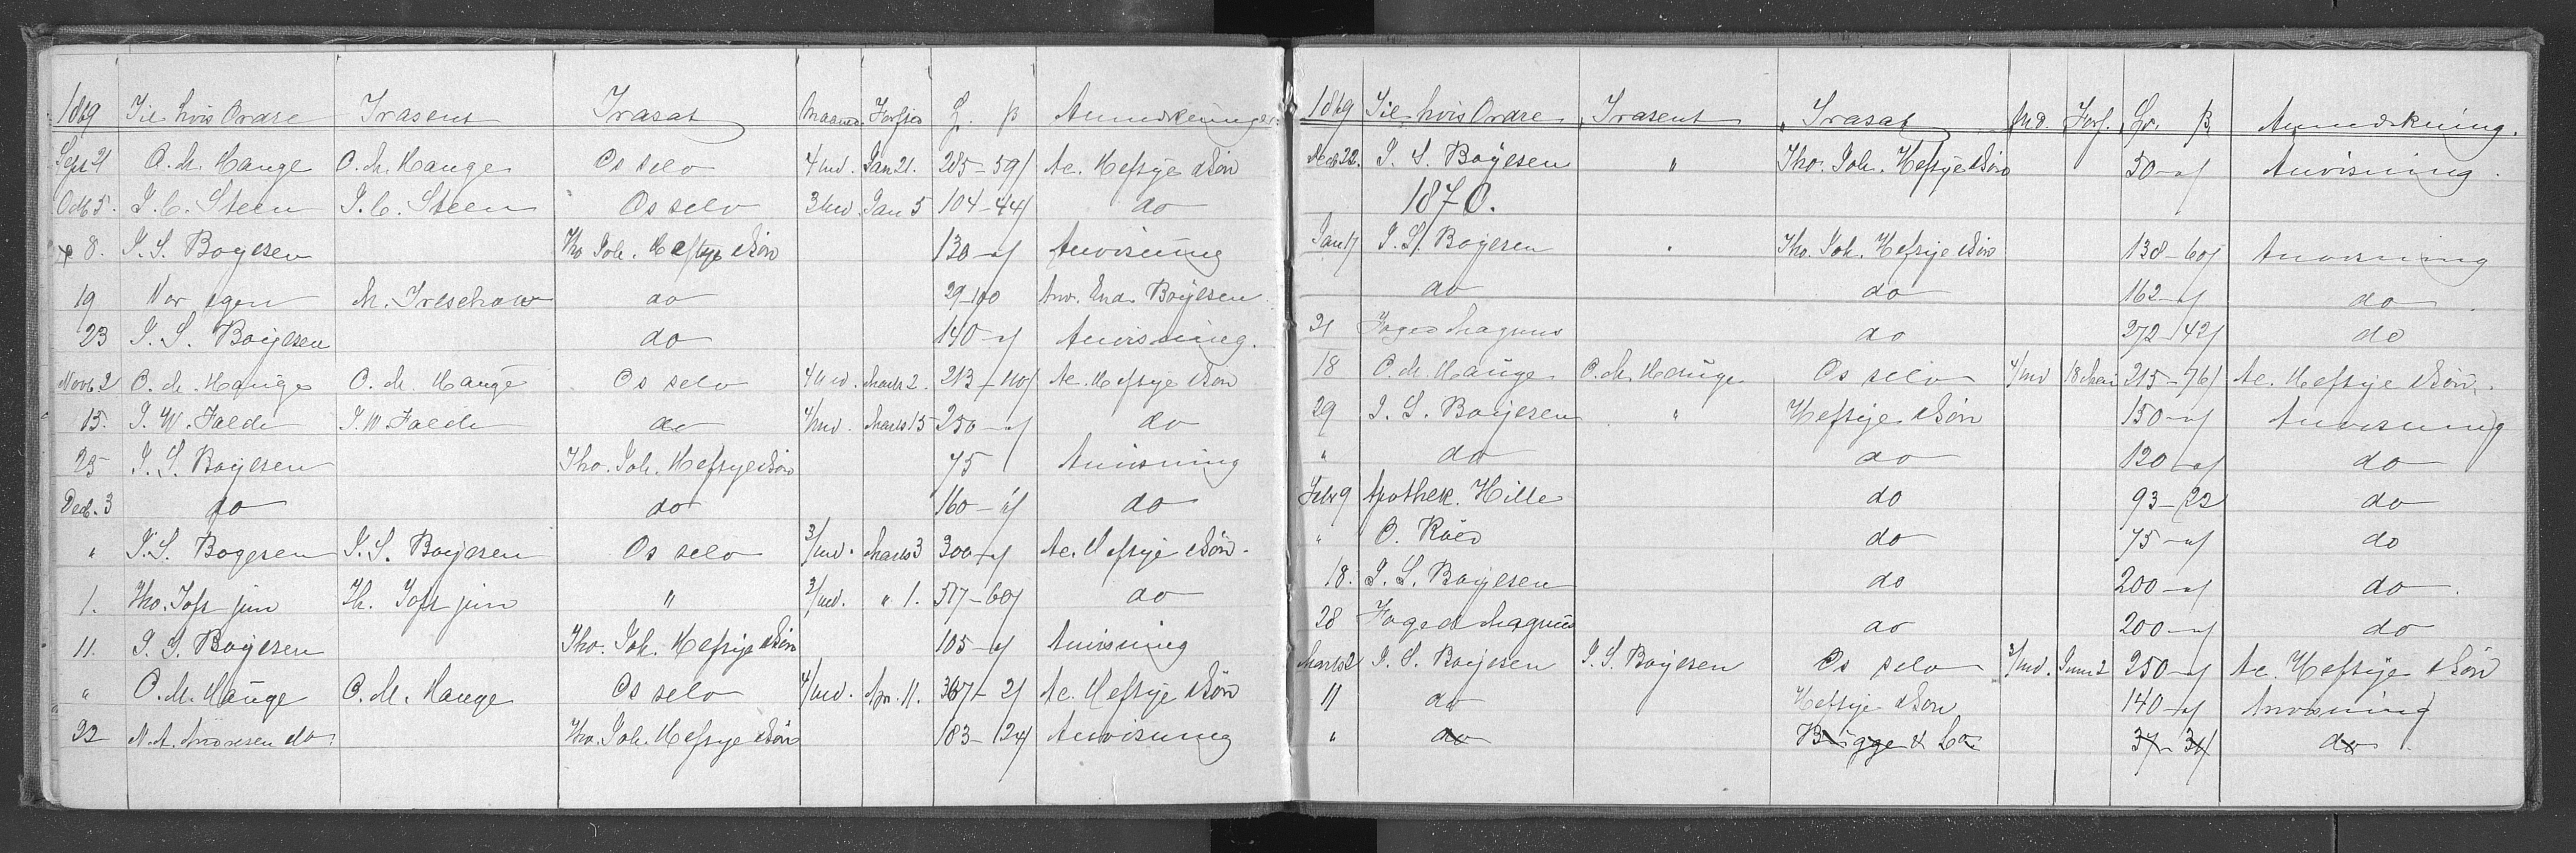 1869 Til hvis Ordre Trasent Trasat Maaned Forfald £. β Anmærkninger.
Sept 21 O. M. Hauge O. M. Hauge Os selv 4 md. Jan 21. 285-59/ Ac. Heftye & Søn
Octb 5. J. C. Steen J. C. Steen Os selv 3 md. Jan 5 104-44/ do
8. I. S. Boyesen Tho Joh. Heftye & Søn 130-"/ Anvisning
19 Vor egen M. Treschow do 29-100 Anv. End. Boyesen.
23 I. S. Boyesen do 140-"/ Anvisning.
Novb 2 O. M. Hauge O. M. Hauge Os selv 4 md. Marts 2. 213-110/ Ac. Heftye & Søn
15. I. W. Falde I. W. Falde do 4/md. Marts 15 250-"/ do
25 I. S. Boyesen Tho. Joh. Heftye & Søn 75 Anvisning
Decb. 3 do do 160-"/ do
" I. S. Boyesen I. S. Boyesen Os selv 3/md. Marts 3 300-"/ Ac. Heftye & Søn.
1. Tho. Joft jun Th. Joft jun " 3/md. " 1. 517-60/ do
11. I. S. Boyesen Tho. Joh. Heftye & Søn 105-"/ Anvisning
" O. M. Hauge O. M. Hauge Os selv 4/md. Apr. 11. 367-2/ Ac. Heftye & Søn
22 N. A. Andresen do. Tho. Joh. Heftye & Søn 183-124/ Anvisning
1869 Til hvis Ordre Trasent Trasat Md. Forf. Β. Anmærkning.
Decb 22. I. S. Boyesen " Tho. Joh. Heftye & Søn 50-"/ Anvisning.
1870.
Jan 17 I. S. Boyesen " Tho. Joh. Heftye & Søn 138-60/ Anvisning
do do 162-"/ do
21 Foged Magnus do 272-42/ do
18 O. M. Hauge O. M. Hauge Os selv 4/md 18 Mai 215-76/ Ac. Heftye & Søn.
29 I. S. Boyesen " Heftye & Søn 150-"/ Anvisning
" do do 120-"/ do
Febr 9 Apothek. Hille do 93-22 do
" O. Röed do 75-"/ do
18. I. S. Boyesen do 200-"/ do.
28 Foged Magnus do 200-"/ do
Marts 2 I. S. Boyesen I. S. Boyesen Os selv 3/md. Juni 2 250-"/ Ac. Heftye & Søn
11 do Heftye & Søn 140-"/ Anvisning
" do Bügge & Co 37-31/ do.